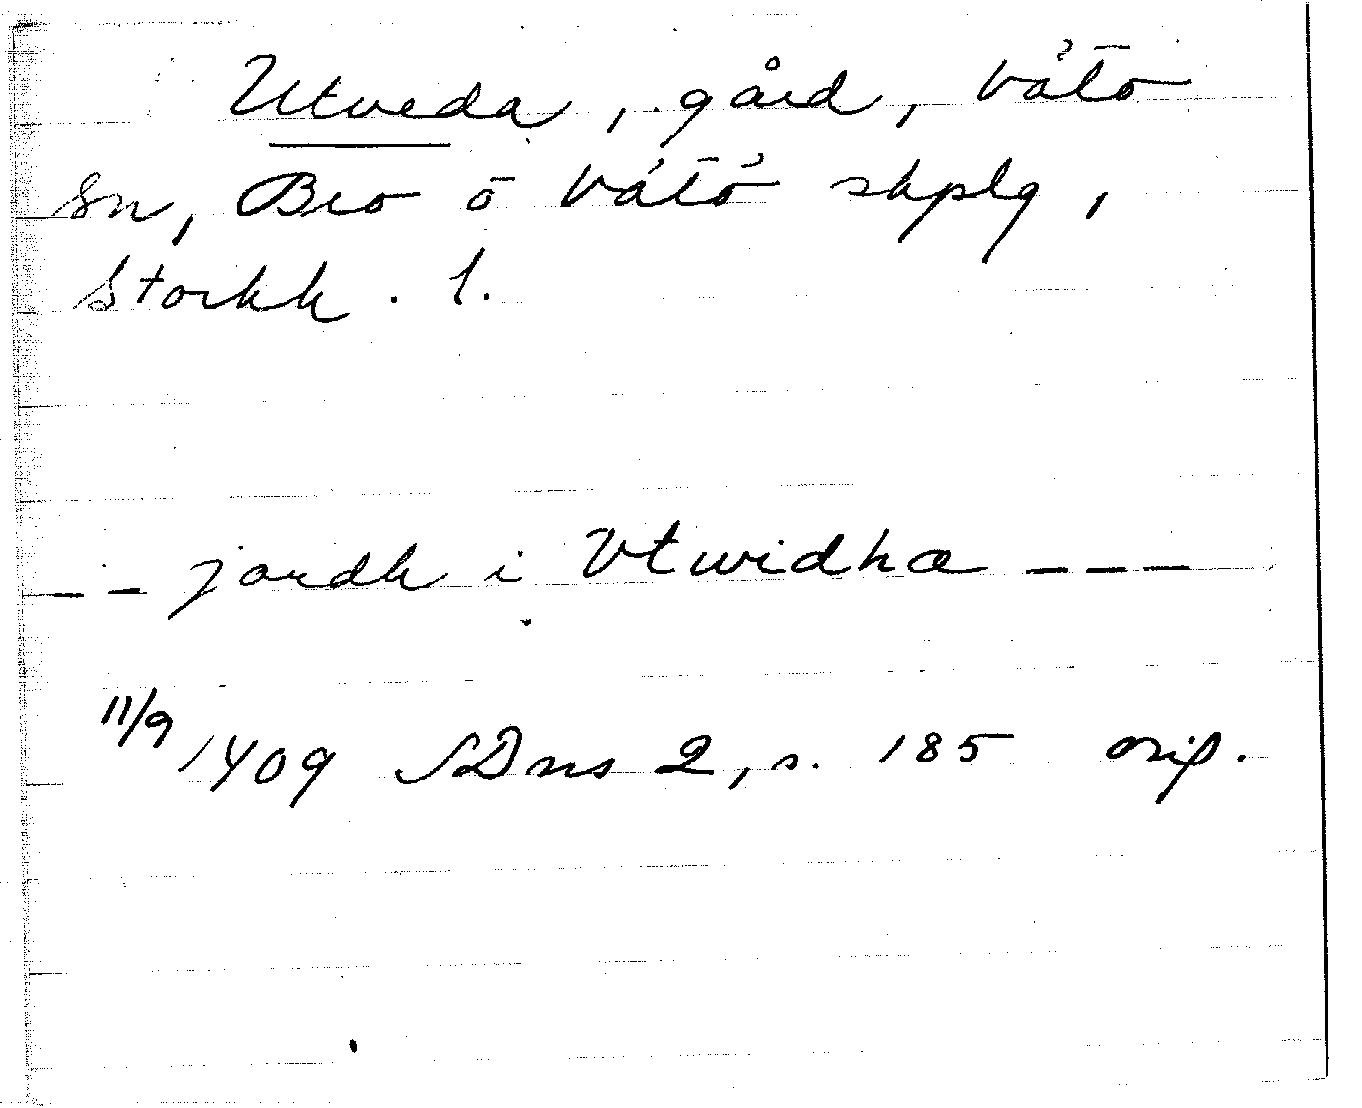 Utveda, gård, Vätö
sn, Bro o Vätö skplg,
Stockh. l.
_ _ jordh i Vtwidha _ _ _
11/9 1409 SDns 2, s. 185 orig.